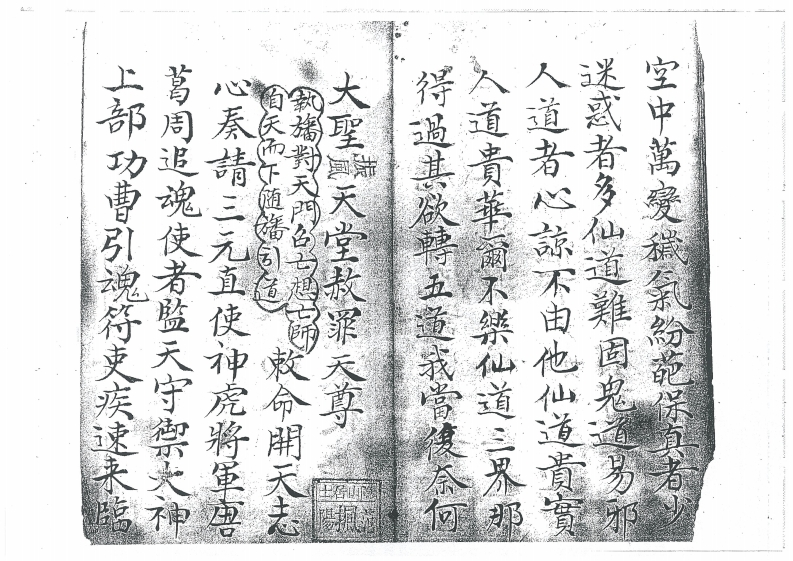 空中萬變穢氣紛葩保真者少
迷惑者多仙道難固鬼道易邪
人道者心諒不由他仙道貴實
人道貴華爾不樂仙道三界那
得過其欲轉五道我當復奈何
大聖天堂赦罪天尊
執旛對天門召亡想亡師
自天而下随旛引道
敕命開天志
心奏請三元直使神虎將軍唐
葛周追魂使者監天守禦大神
上部功曹引魂符吏疾速来臨